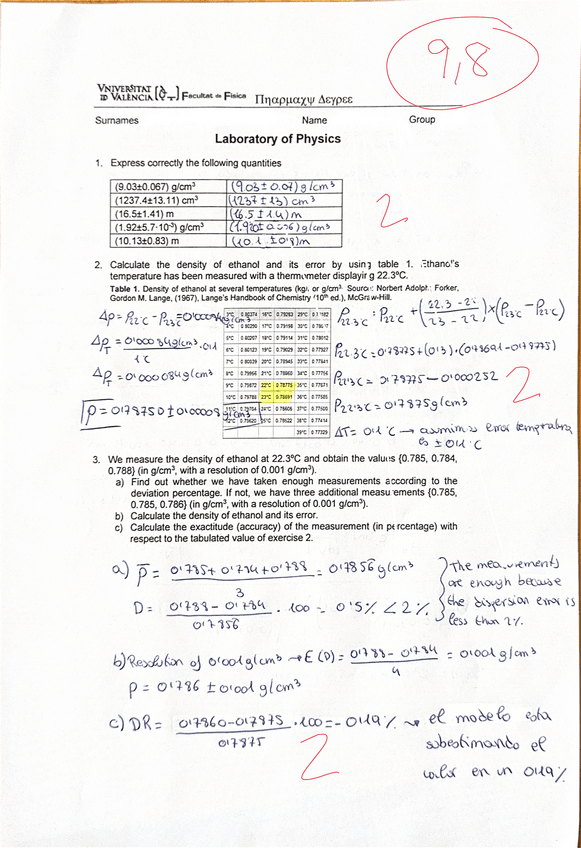 9,8
VNIVERSITAT
ID VALÈNCIA Facultat de Física Πηαρμαχψ Δεγρεε
Surnames Name Group
Laboratory of Physics
1. Express correctly the following quantities
(9.03±0.067) g/cm³ (9.03±0.07) g/cm³
(1237.4±13.11) cm³ (1237±13) cm³
(16.5±1.41) m (16.5±1.4) m
(1.92±5.7·10⁻³) g/cm³ (1.920±0.006) g/cm³
(10.13±0.83) m (10.1±0.8) m
2
2. Calculate the density of ethanol and its error by using table 1. Ethanol's
temperature has been measured with a thermometer displaying 22.3°C.
Table 1. Density of ethanol at several temperatures (kg/ or g/cm³. Source: Norbert Adolph; Forker,
Gordon M. Lange, (1967), Lange's Handbook of Chemistry (10th ed.), McGraw-Hill.
3°C 0.80374 16°C 0.79283 29°C 0.78182
4°C 0.80290 17°C 0.79198 30°C
5°C 0.80207 18°C 0.79114 31°C 0.78012
6°C 0.80123 19°C 0.79029 32°C 0.77927
7°C 0.80039 20°C 0.78945 33°C 0.77841
8°C 0.79956 21°C 0.78860 34°C 0.77756
9°C 0.79872 22°C 0.78775 35°C 0.77671
10°C 0.79788 23°C 0.78691 36°C 0.77585
11°C 0.79704 24°C 0.78606 37°C 0.77500
12°C 0.79620 25°C 0.78522 38°C 0.77414
39°C 0.77329
Δρ = ρ22°C - ρ23°C = 0'00084 g/cm³
Δρ/T = 0'00084 g/cm³ / 1°C · 0'1
Δρ/T = 0'000084 g/cm³
ρ = 0'78750 ± 0'00008 g/cm³
ρ22'3°C: ρ22°C + (22.3 - 22 / 23 - 22) × (ρ23°C - ρ22°C)
ρ22'3°C = 0'78775 + (0'3) · (0'78691 - 0'78775)
ρ22'3°C = 0'78775 - 0'000252
ρ22'3°C = 0'7875 g/cm³
2
ΔT = 0'1 °C → asumimos error temperatura
es ± 0'1 °C
3. We measure the density of ethanol at 22.3°C and obtain the values {0.785, 0.784,
0.788} (in g/cm³, with a resolution of 0.001 g/cm³).
a) Find out whether we have taken enough measurements according to the
deviation percentage. If not, we have three additional measurements {0.785,
0.785, 0.786} (in g/cm³, with a resolution of 0.001 g/cm³).
b) Calculate the density of ethanol and its error.
c) Calculate the exactitude (accuracy) of the measurement (in percentage) with
respect to the tabulated value of exercise 2.
a) ρ = 0'785 + 0'784 + 0'788 / 3 = 0'7856 g/cm³
D = 0'788 - 0'784 / 0'7856 · 100 = 0'5% < 2%
The measurements
are enough because
the dispersion error is
less than 2%.
b) Resolution of 0'001 g/cm³ → E(D) = 0'788 - 0'784 / 4 = 0'001 g/cm³
ρ = 0'786 ± 0'001 g/cm³
c) DR = 0'7860 - 0'7875 / 0'7875 · 100 = -0'19% → el modelo esta
subestimando el
valor en un 0'19%
2